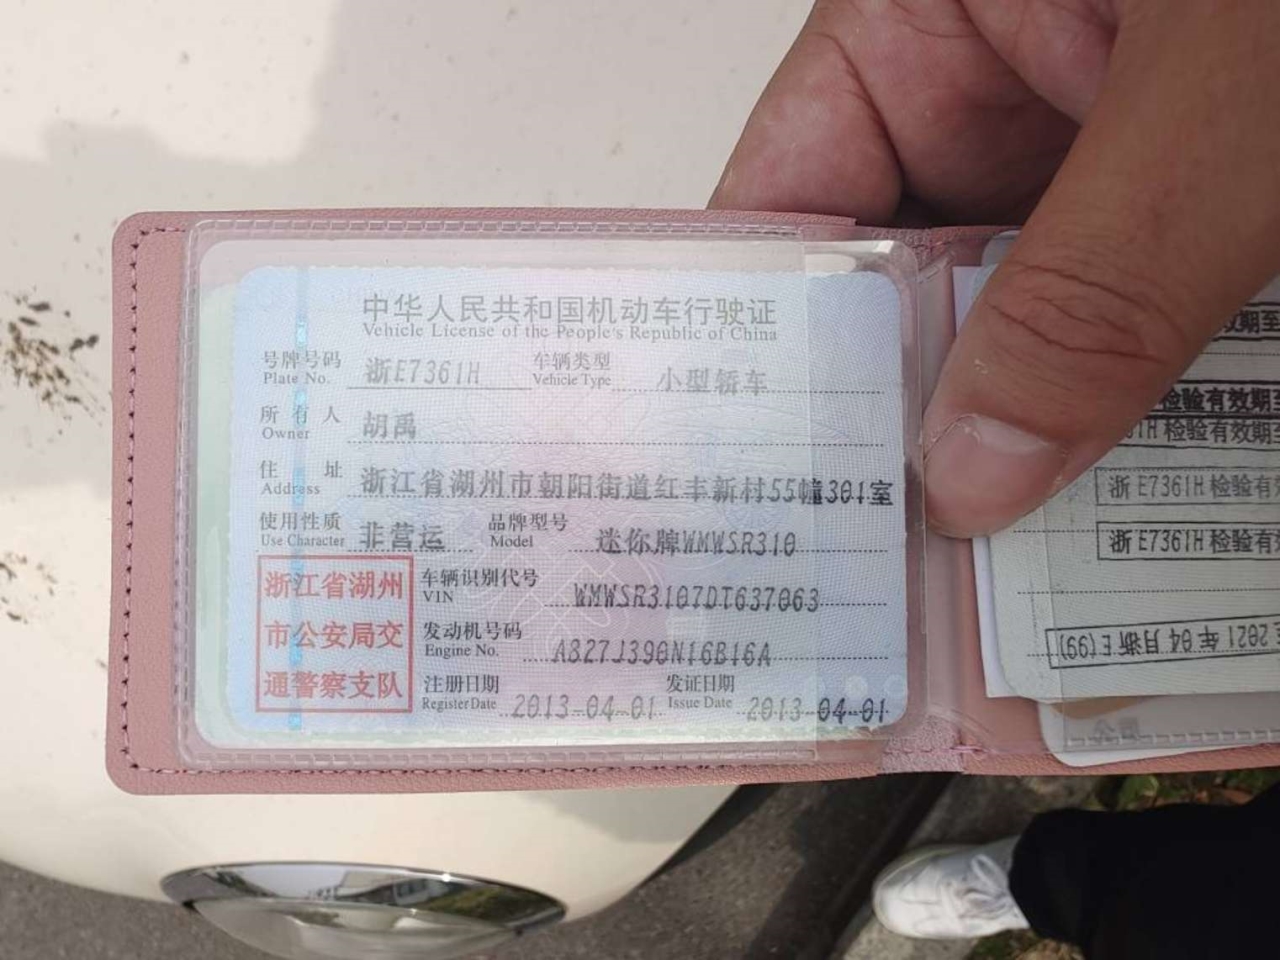 中华人民共和国机动车行驶证
Vehicle License of the People's Republic of China
号牌号码 浙E7361H 车辆类型 小型轿车
Plate No. Vehicle Type
所有人 胡禹
Owner
住址 浙江省湖州市朝阳街道红丰新村55幢301室
Address
使用性质 非营运 品牌型号 迷你牌WMWSR310
Use Character Model
浙江省湖州
市公安局交
通警察支队
车辆识别代号 WMWSR3107DT637063
VIN
发动机号码 A827J390N16B16A
Engine No.
注册日期 2013-04-01 发证日期 2013-04-01
Register Date Issue Date
期至
检验有效期至
1H 检验有效期至
浙E7361H 检验有
浙E7361H 检验有
2021 年 04 月浙 E (99)